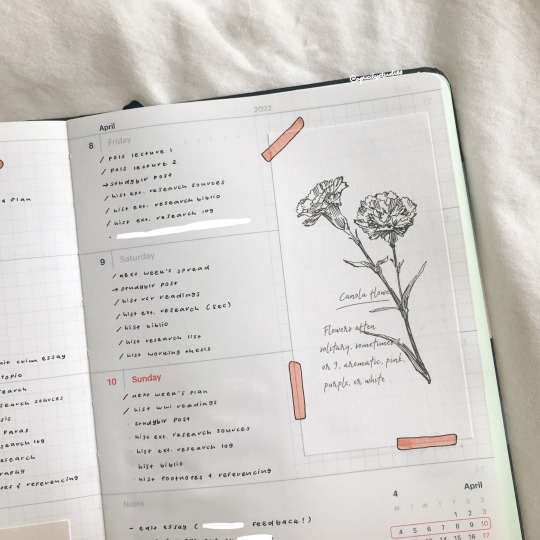 2022
April
8 Friday
/ pols lecture 1
/ pols lecture 2
→ studyblr post
/ hist ext. research sources
/ hist ext. research biblio
/ hist ext. research log
9 Saturday
/ next week's spread
→ studyblr post
/ hist rsr readings
/ hist ext. research (sec)
/ hist biblio
/ hist research list
/ hist working thesis
10 Sunday
/ next week's plan
/ hist wwi readings
· studyblr post
· hist ext. research sources
· hist ext. research log
· hist biblio
· hist footnotes & referencing
Notes
- edlo essay ( feedback!)
& plan
crim essay
topic
search
search sources
sis
paras
search log
search
graphy
& referencing
Canola flower
Flowers often
solitary, sometimes
or 9, aromatic, pink
purple, or white
4 April
M T W T F S S
1 2 3
4 5 6 7 8 9 10
17